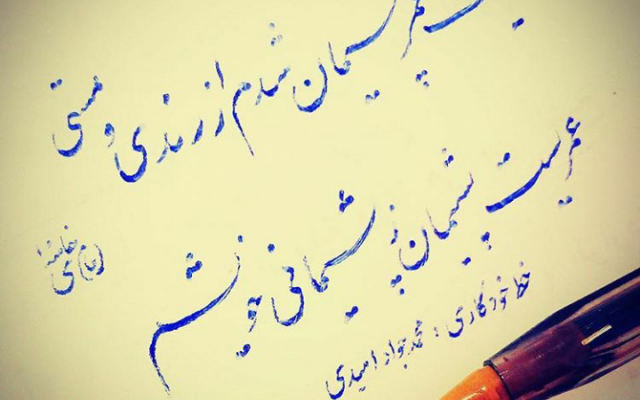 پشیمان شدم از رندی و مستی
عمریست پشیمان ز پشیمانی خویشم
امام خامنه‌ای
خط خودکاری : محمدجواد امیدی